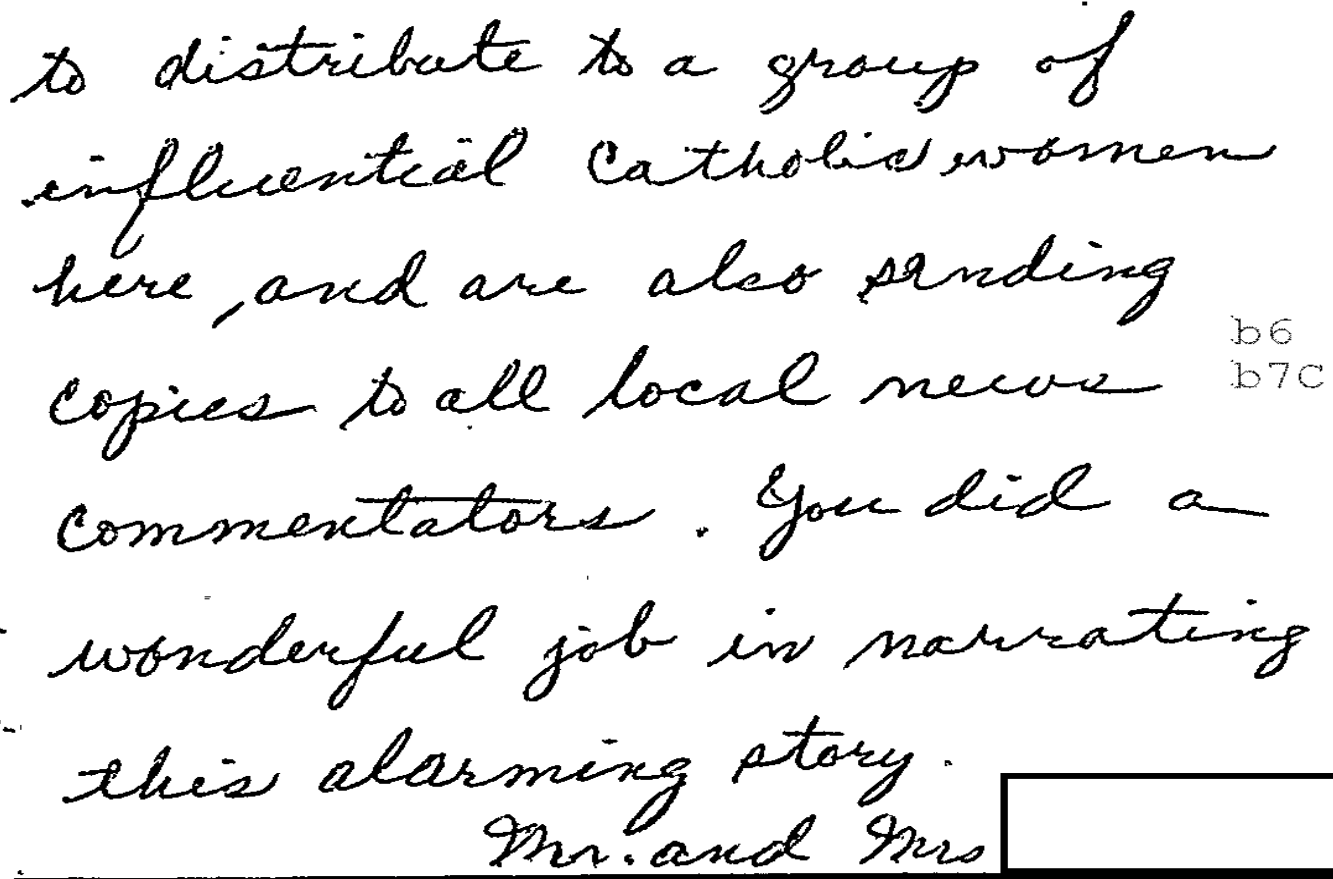 to distribute to a group of
influential Catholic women
here, and are also sending
copies to all local news
b6
b7C
commentators. You did a
wonderful job in narrating
this alarming story.
Mr. and Mrs